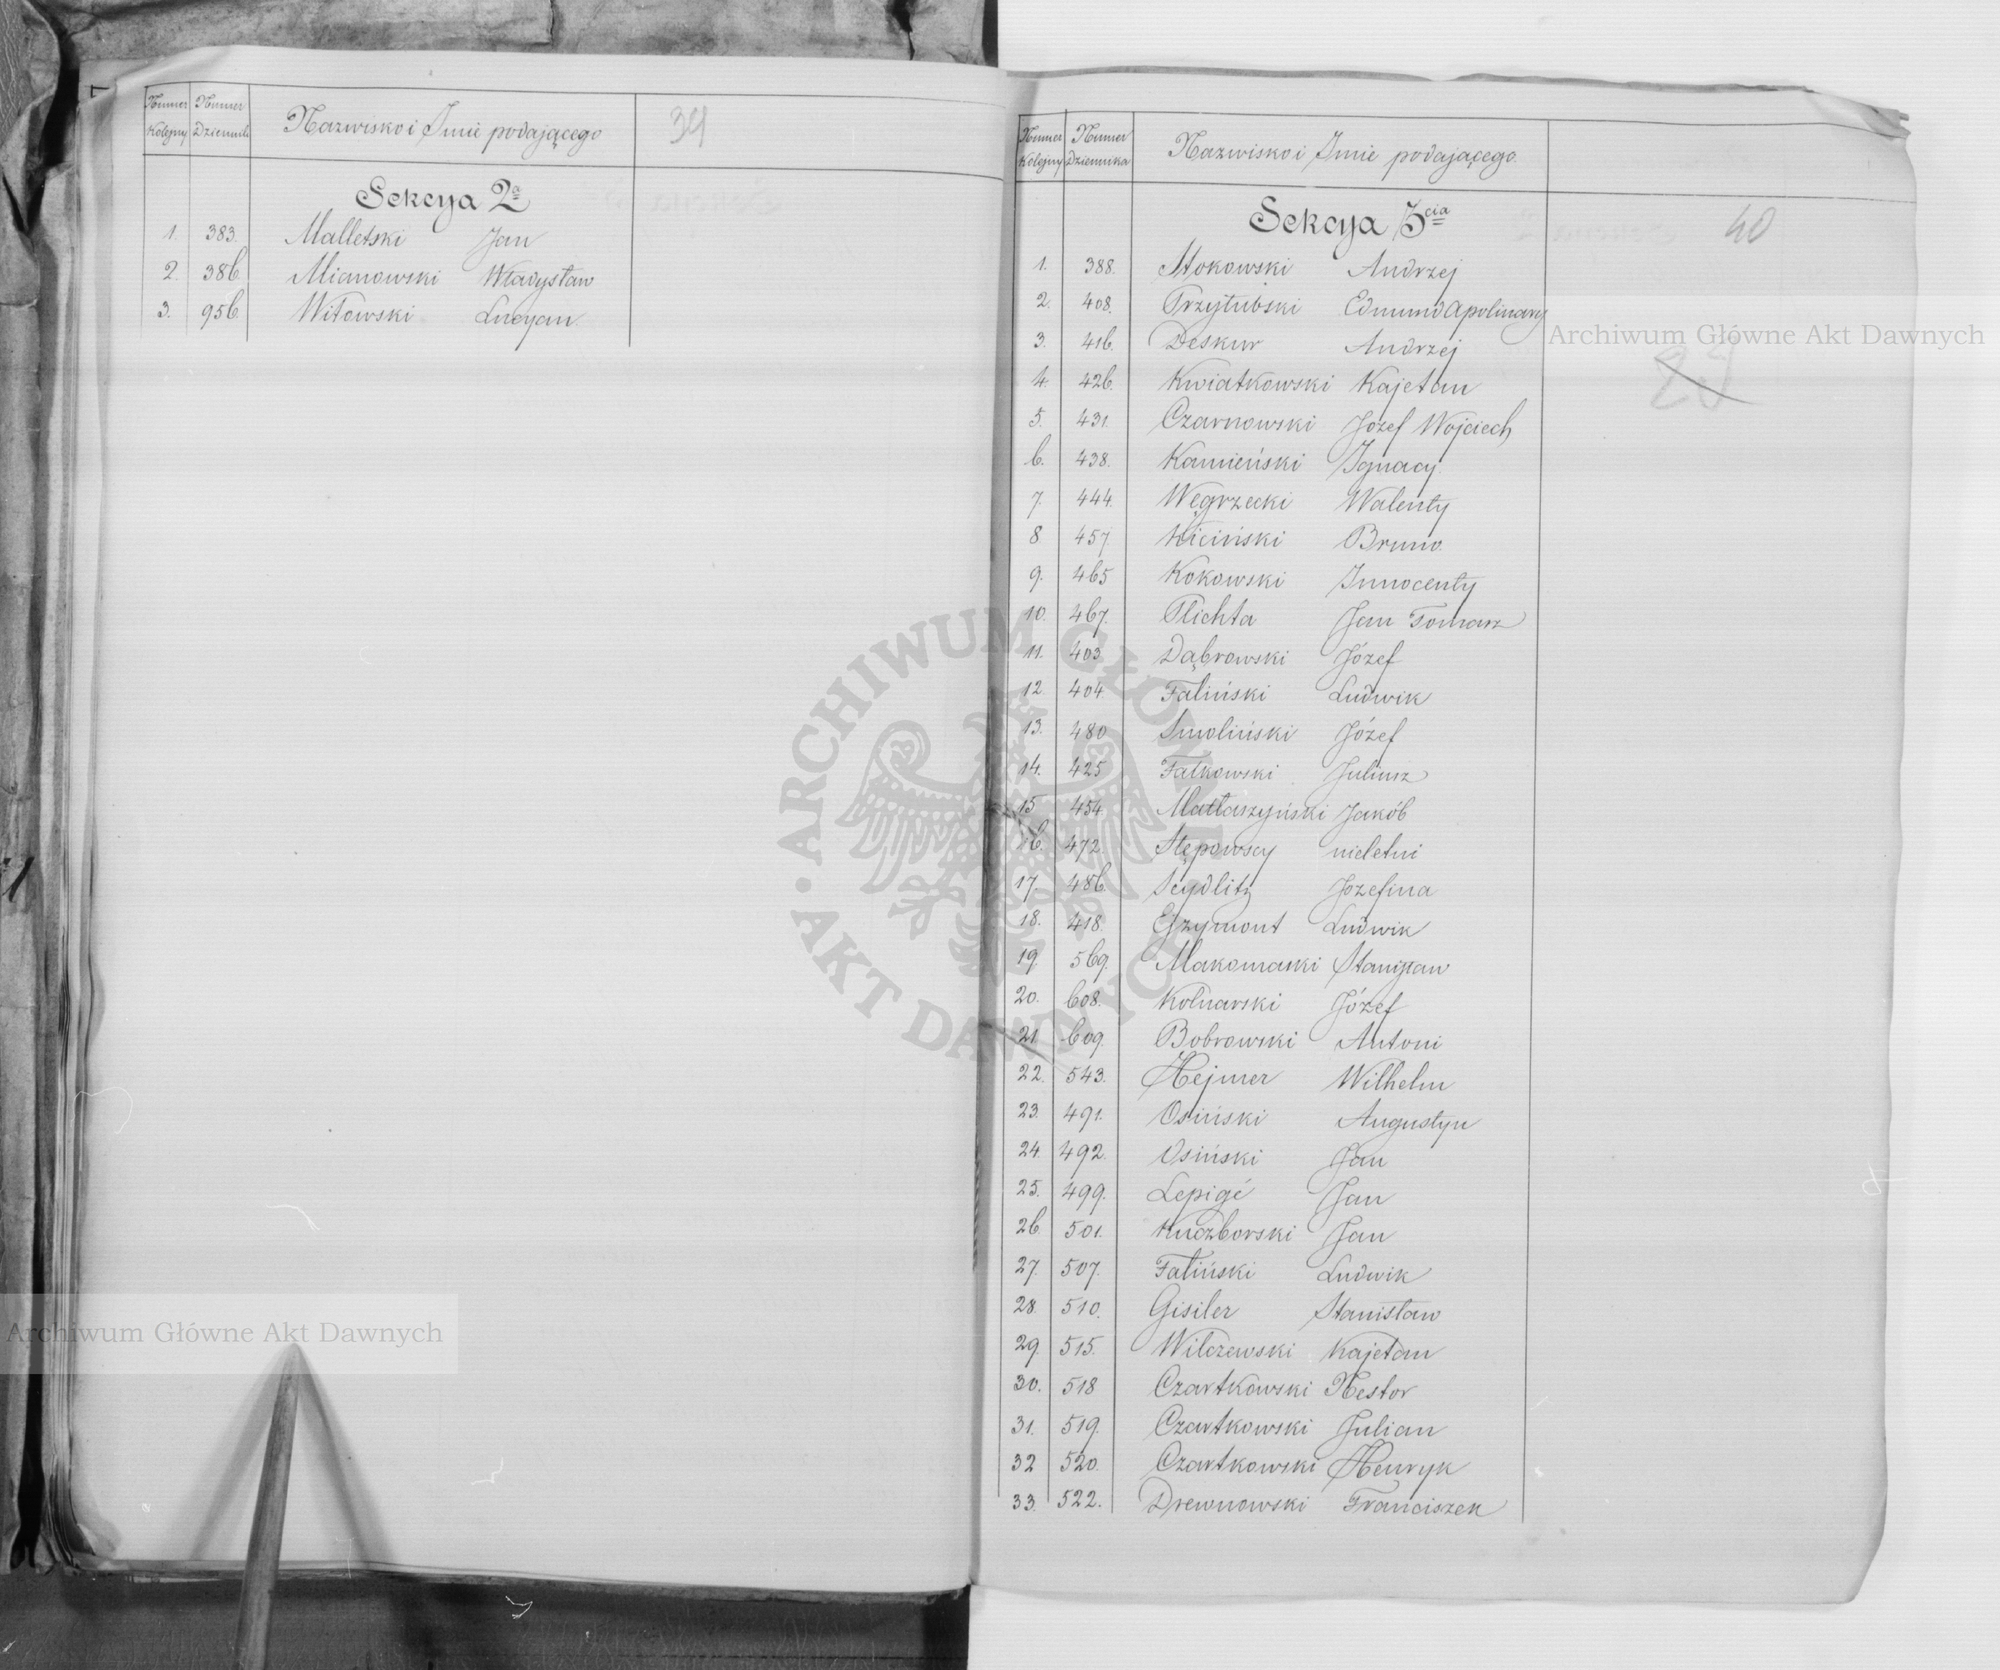 Numer Kolejny Numer Dziennik Nazwisko i Imie podającego 39
Sekcya 2a
1. 383. Malletski Jan
2. 386. Mianowski Władysław
3. 956. Witowski Lucyan
Numer Kolejny Numer Dziennika Nazwisko i Imie podającego
Sekcya 3cia 40
1. 388. Stokowski Andrzej
2. 408. Przyłubski Edmund Apolinary
3. 416. Deskur Andrzej
29
4. 426. Kwiatkowski Kajetan
5. 431. Czarnowski Józef Wojciech
6. 438. Kamieński Ignacy
7. 444. Węgrzecki Walenty
8 457. Kiciński Bruno
9. 465 Kokowski Innocenty
10. 467. Plichta Jan Tomasz
11. 403 Dąbrowski Józef
12. 404 Faliński Ludwik
13. 480 Smoliński Józef
14. 425 Falkowski Juliusz
15 454. Matłaszyński Jakób
16. 472 Stępowscy nieletni
17. 486. Seydlitz Józefina
18. 418. Ejzymont Ludwik
19. 569. Makomaski Stanisław
20. 608. Kolnarski Józef
21 609. Bobrowski Antoni
22. 543. Hejmer Wilhelm
23. 491. Osiński Augustyn
24. 492. Osiński Jan
25. 499. Lepigé Jan
26 501. Kuczborski Jan
27. 507. Faliński Ludwik
28. 510. Gisiler Stanisław
29. 515. Wilczewski Kajetan
30. 518 Czartkowski Nestor
31. 519. Czartkowski Julian
32 520. Czartkowski Henryk
33. 522. Drewnowski Franciszek
Archiwum Główne Akt Dawnych
Archiwum Główne Akt Dawnych
ARCHIWUM GŁÓWNE AKT DAWNYCH